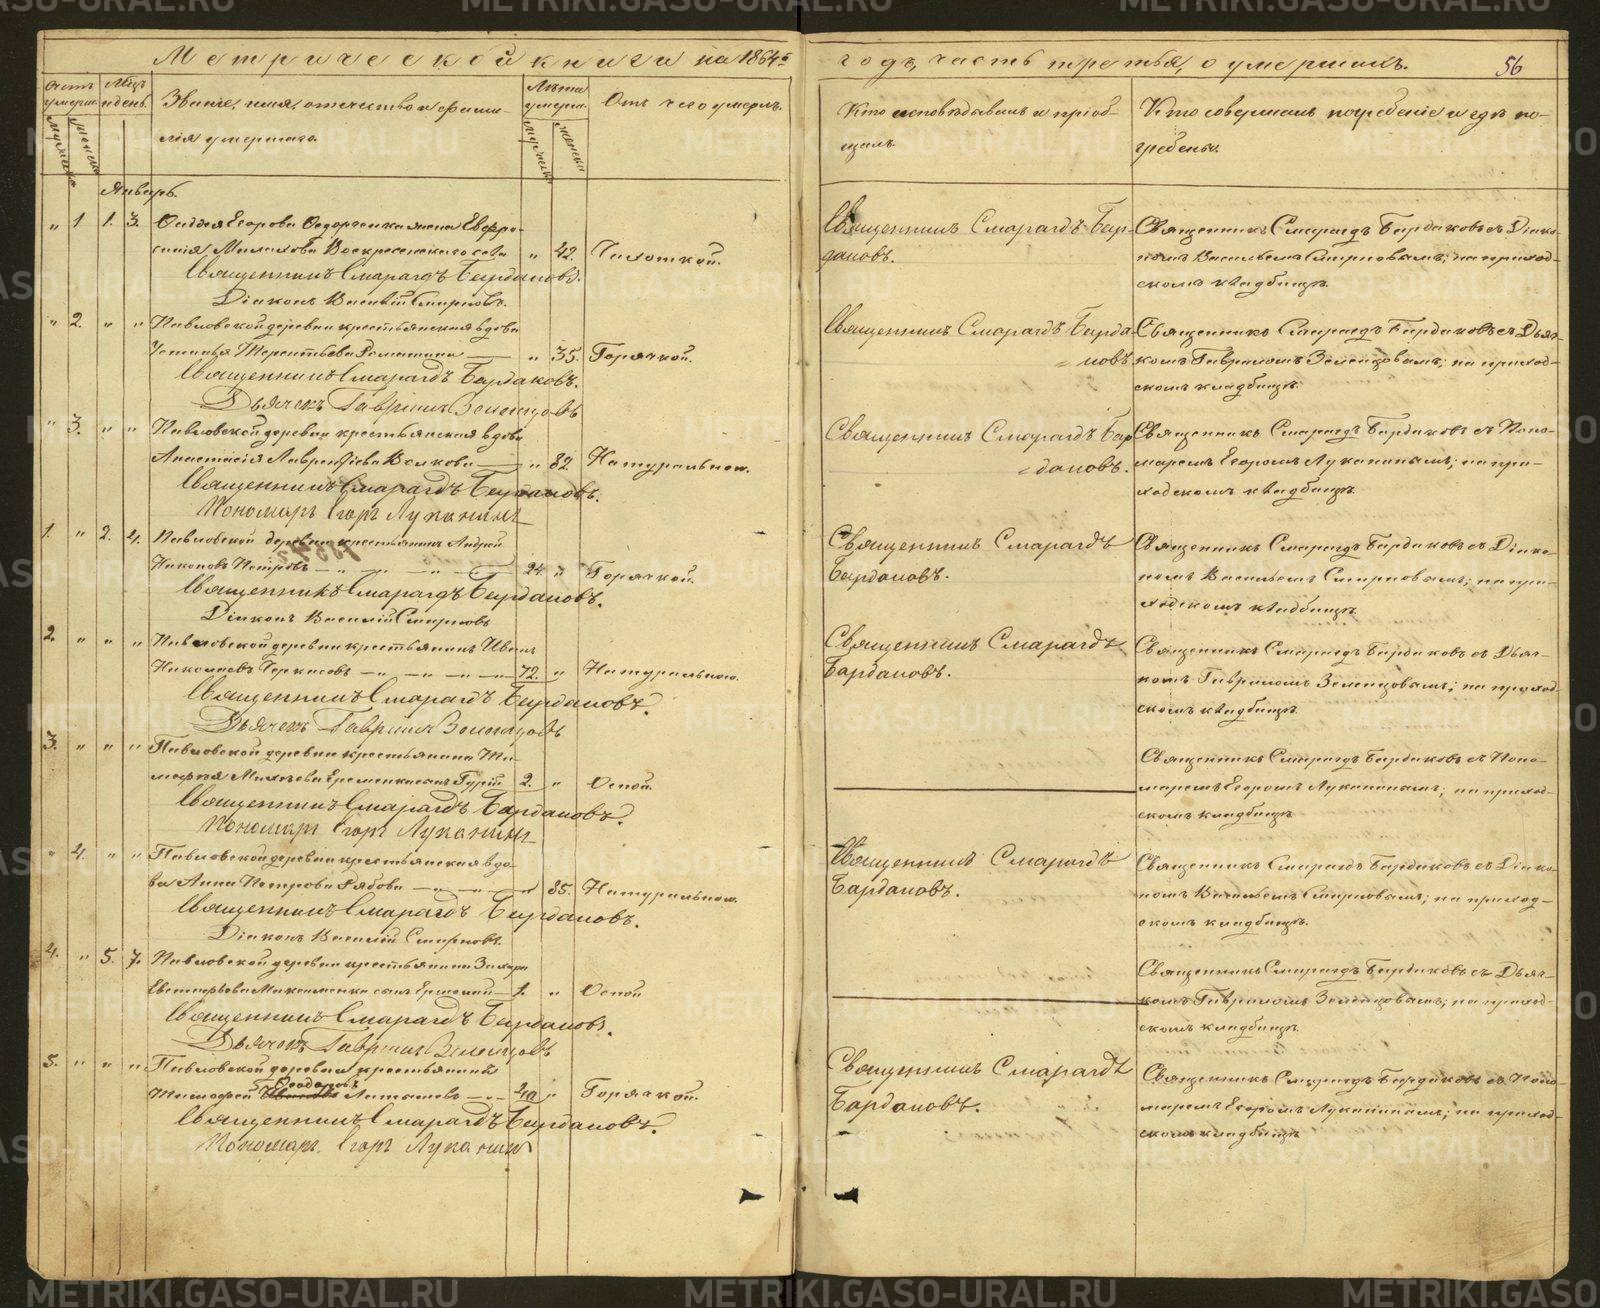 Метрической книги на 1864й
годъ, часть третья, о умершихъ.
56
Счетъ умерш.
Мцъ и день.
Званіе, имя, отечество и фами-
лія умершаго.
Лѣта умерш.
Отъ чего умеръ.
Мужеска
Женска
Мужеска
Женска
Кто исповѣдывалъ и пріоб-
щалъ.
Кто совершалъ погребеніе и гдѣ по-
гребены.
Январь.
" 1 1. 3. Егорова жена Евфро-
синія Воскресенскаго " 42. Чахоткой.
Священникъ Смарагдъ Бардаковъ.
Діаконъ Василій Смирновъ.
Священникъ Смарагдъ Бар-
даковъ.
Священникъ Смарагдъ Бардаковъ съ Діако-
номъ Васильемъ Смирновымъ; на приход-
скомъ кладбищѣ.
" 2. " " Павловской деревни крестьянская вдова
Устинья Терентьева " 35. Горячкой.
Священникъ Смарагдъ Бардаковъ.
Дьячекъ Гавріилъ Зеленцовъ
Священникъ Смарагдъ Барда-
ковъ.
Священникъ Смарагдъ Бардаковъ съ Дьяч-
комъ Гавріломъ Зеленцовымъ; на приход-
скомъ кладбищѣ.
" 3. " " Павловской деревни крестьянская вдова
Анастасія Лаврентіева Волкова " 82. Натурально.
Священникъ Смарагдъ Бардаковъ.
Пономарь Егоръ Луканинъ
Священникъ Смарагдъ Бар-
даковъ.
Священникъ Смарагдъ Бардаковъ съ Поно-
маремъ Егоромъ Луканинымъ; на при-
ходскомъ кладбищѣ.
1. " 2. 4. Павловской деревни крестьянинъ Андрей
Никоновъ Петровъ 24. " Горячкой.
Священникъ Смарагдъ Бардаковъ.
Діаконъ Василій Смирновъ
Священникъ Смарагдъ
Бардаковъ.
Священникъ Смарагдъ Бардаковъ съ Діако-
номъ Васильемъ Смирновымъ; на при-
ходскомъ кладбищѣ.
2. " " " Павловской деревни крестьянинъ Иванъ
Николаевъ Черкасовъ 72. " Натурально.
Священникъ Смарагдъ Бардаковъ.
Дьячекъ Гавріилъ Зеленцовъ
Священникъ Смарагдъ
Бардаковъ.
Священникъ Смарагдъ Бардаковъ съ Дьяч-
комъ Гавріломъ Зеленцовымъ; на приход-
скомъ кладбищѣ.
3. " " " Павловской деревни крестьянина Ти-
мофея сынъ Гурій 2. " Оспой.
Священникъ Смарагдъ Бардаковъ.
Пономарь Егоръ Луканинъ
Священникъ Смарагдъ Бардаковъ съ Поно-
маремъ Егоромъ Луканинымъ; на приход-
скомъ кладбищѣ
" 4. " " Павловской деревни крестьянская вдо-
ва Анна Петрова Рябова " 85. Натурально.
Священникъ Смарагдъ Бардаковъ.
Діаконъ Василій Смирновъ.
Священникъ Смарагдъ
Бардаковъ.
Священникъ Смарагдъ Бардаковъ съ Діако-
номъ Васильемъ Смирновымъ; на приход-
скомъ кладбищѣ.
4. " 5. 7. Павловской деревни крестьянина Захара
сынъ 1. " Оспой
Священникъ Смарагдъ Бардаковъ.
Дьячекъ Гавріилъ Зеленцовъ
Священникъ Смарагдъ Бардаковъ съ Дьяч-
комъ Гавріломъ Зеленцовымъ; на приход-
скомъ кладбищѣ.
5. " " " Павловской деревни крестьянинъ
Тимофей 40 " Горячкой.
Священникъ Смарагдъ Бардаковъ.
Пономарь Егоръ Луканинъ
Священникъ Смарагдъ
Бардаковъ.
Священникъ Смарагдъ Бардаковъ съ Поно-
маремъ Егоромъ Луканинымъ; на приход-
скомъ кладбищѣ
METRIKI.GASO-URAL.RU